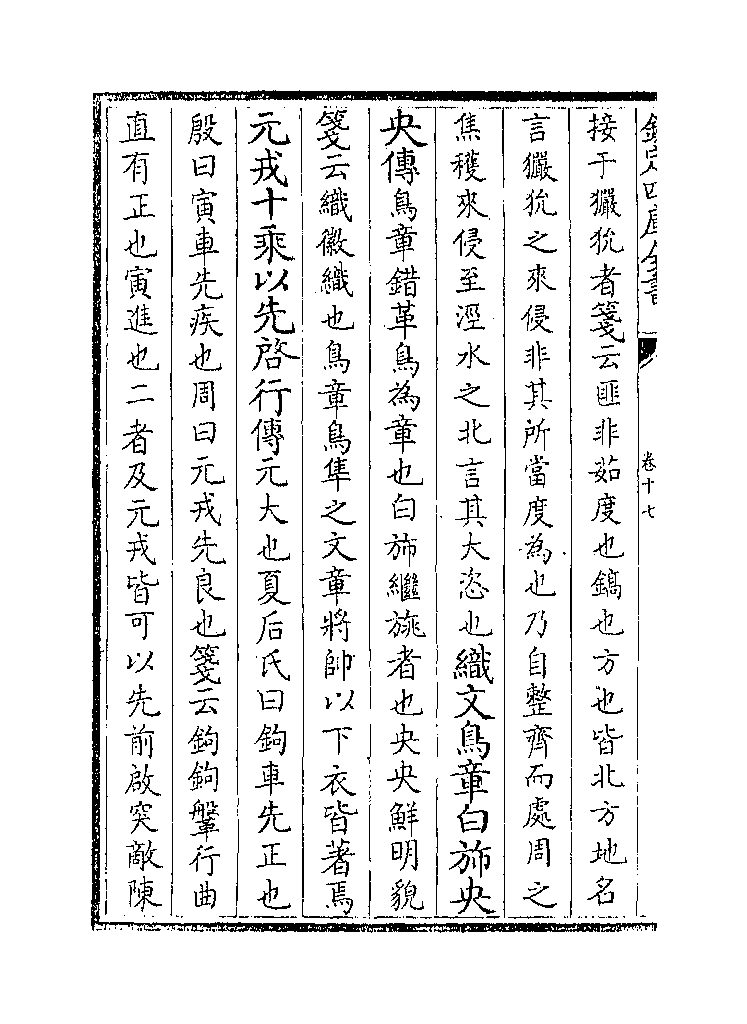 欽定四庫全書
卷十七
接于玁狁者箋云匪非茹度也鎬也方也皆北方地名
言玁狁之來侵非其所當度為也乃自整齊而處周之
焦穫來侵至涇水之北言其大恣也織文鳥章白斾央
央傳鳥章錯革鳥為章也白斾繼旐者也央央鮮明貌
箋云織徽織也鳥章鳥隼之文章將帥以下衣皆著焉
元戎十乘以先啓行傳元大也夏后氏曰鉤車先正也
殷曰寅車先疾也周曰元戎先良也箋云鉤鉤鞶行曲
直有正也寅進也二者及元戎皆可以先前啟突敵陳